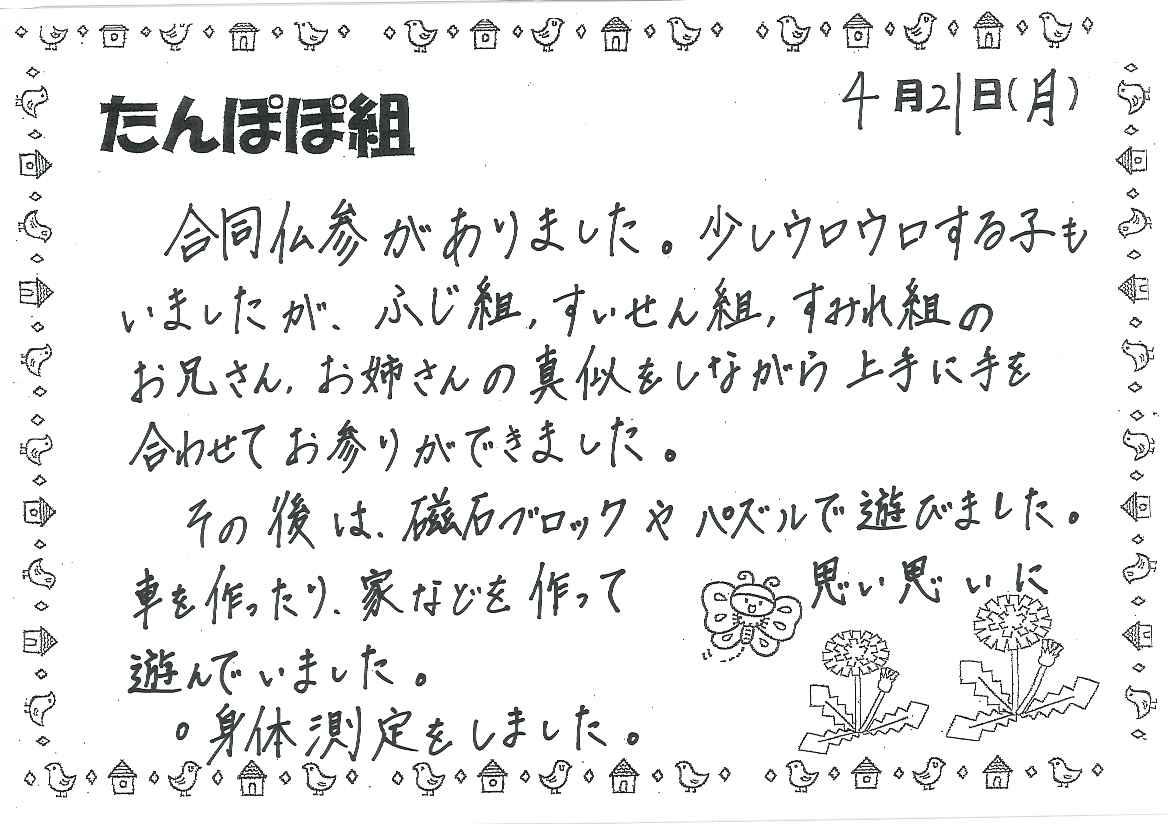 たんぽぽ組
4月21日(月)
合同仏参がありました。少しウロウロする子も
いましたが、ふじ組,すいせん組,すみれ組の
お兄さん,お姉さんの真似をしながら上手に手を
合わせてお参りができました。
その後は、磁石ブロックやパズルで遊びました。
車を作ったり、家などを作って 思い思いに
遊んでいました。
○身体測定をしました。